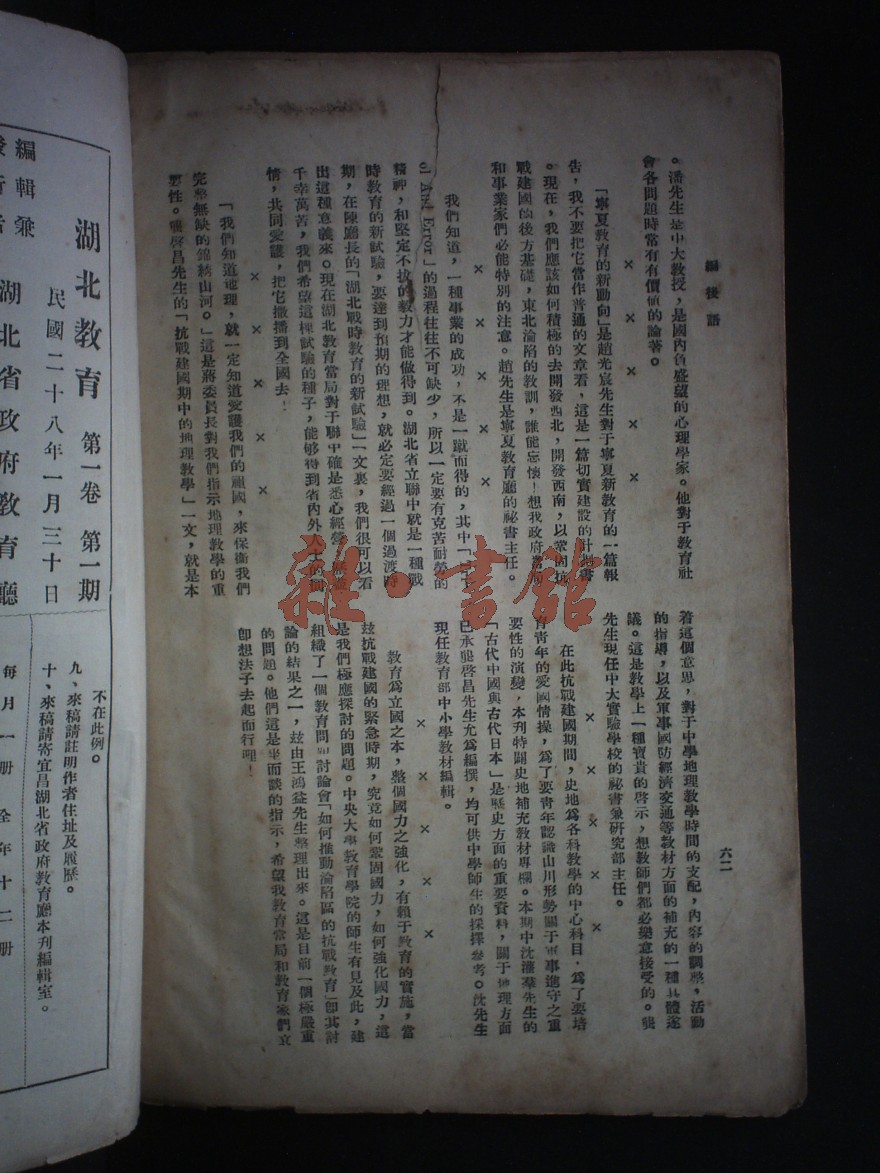 編後話
六二
。潘先生是中大教授,是國內負盛望的心理學家。他對于教育社
會各問題時常有有價值的論著。
× × × × ×
「寧夏教育的新動向」是趙光宸先生對于寧夏新教育的一篇報
告,我不要把它當作普通的文章看,這是一篇切實建設的計劃書
。現在,我們應該如何積極的去開發西北,開發西南,以鞏固抗
戰建國的後方基礎,東北淪陷的教訓,誰能忘懷!想我政府當局
和事業家們必能特別的注意。趙先生是寧夏教育廳的祕書主任。
× × × × ×
我們知道,一種事業的成功,不是一蹴而得的,其中「
al And Error」的過程往往不可缺少,所以一定要有克苦耐勞的
精神,和堅定不拔的毅力才能做得到。湖北省立聯中就是一種戰
時教育的新試驗,要達到預期的理想,就必定要經過一個過渡時
期,在陳廳長的「湖北戰時教育的新試驗」一文裏,我們很可以看
出這種意義來。現在湖北教育當局對于聯中確是悉心經營,
千幸萬苦,我們希望這棵試驗的種子,能够得到省內外人士的同
情,共同愛護,把它撒播到全國去!
× × × × ×
「我們知道地理,就一定知道愛護我們的祖國,來保衞我們
完整無缺的錦綉山河。」這是蔣委員長對我們指示地理教學的重
要性。龔啓昌先生的「抗戰建國期中的地理教學」一文,就是本
着這個意思,對于中學地理教學時間的支配,內容的調整,活動
的指導,以及軍事國防經濟交通等教材方面的補充的一種具體建
議。這是教學上一種寶貴的啓示,想教師們都必樂意接受的。龔
先生現任中大實驗學校的祕書兼研究部主任。
× × × × ×
在此抗戰建國期間,史地爲各科教學的中心科目,爲了要培
育青年的愛國情操,爲了要青年認識山川形勢關于軍事進守之重
要性的演變,本刊特闢史地補充教材專欄。本期中沈灌羣先生的
「古代中國與古代日本」是歷史方面的重要資料,關于地理方面
已承龔啓昌先生允爲編撰,均可供中學師生的採擇參考。沈先生
現任教育部中小學教材編輯。
× × × ×
教育爲立國之本,整個國力之強化,有賴于教育的實施,當
玆抗戰建國的緊急時期,究竟如何鞏固國力,如何強化國力,這
是我們極應探討的問題。中央大學教育學院的師生有見及此,建
組織了一個教育問題討論會「如何推動淪陷區的抗戰教育」卽其討
論的結果之一,玆由王鴻益先生整理出來。這是目前一個極嚴重
的問題。他們這是坐而談的指示,希望我教育當局和教育家們立
卽想法子去起而行哩!
不在此例。
九、來稿請註明作者住址及履歷。
十、來稿請寄宜昌湖北省政府教育廳本刊編輯室。
湖北教育 第一卷 第一期
民國二十八年一月三十日
編輯兼
湖北省政府教育廳
每月一册 全年十二册
雜·書館